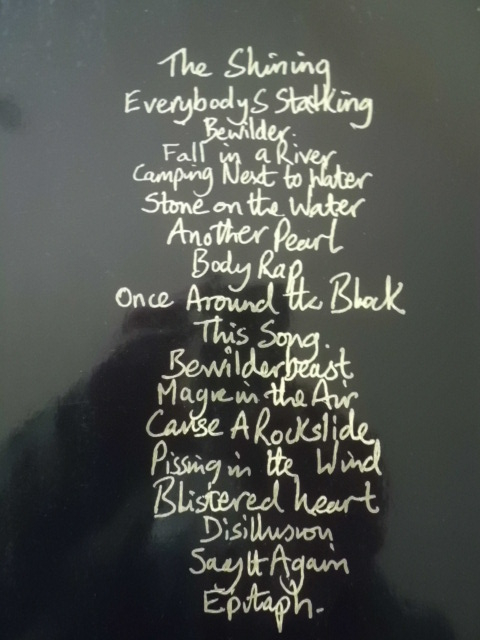 The Shining
Everybodys Stalking
Bewilder.
Fall in a River
Camping Next to Water
Stone on the Water
Another Pearl
Body Rap
Once Around the Block
This Song.
Bewilderbeast
Magic in the Air
Cause A Rockslide
Pissing in the Wind
Blistered heart
Disillusion
Say It Again
Epitaph.